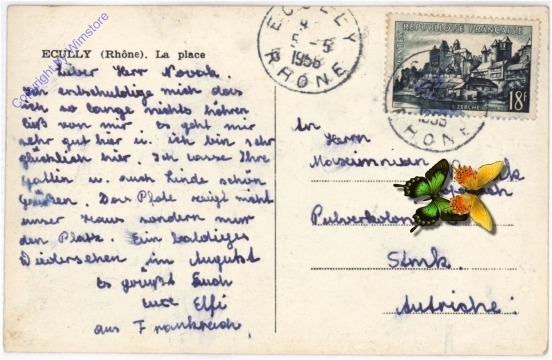 Copyright by Wimstore
ECULLY (Rhône). La place
Lieber Herr Novak.
Ich entschuldige mich das
ich so lange nichts hören
ließ von mir. Es geht mir
sehr gut hier u. ich bin sehr
glücklich hier. Ich lasse Ihre
Gattin u. auch Kinde schön
grüßen. Das Photo zeigt nicht
unser Haus sondern nur
den Platz. Ein baldiges
Wiedersehen im August
Es grüßt Euch
eure Elfi
aus Frankreich.
ECULLY
5 -5
1956
RHÔNE
REPUBLIQUE FRANÇAISE
UZERCHE
18F
RHÔNE
An
Herrn
Pulverkolon
Stmk.
Autriche!